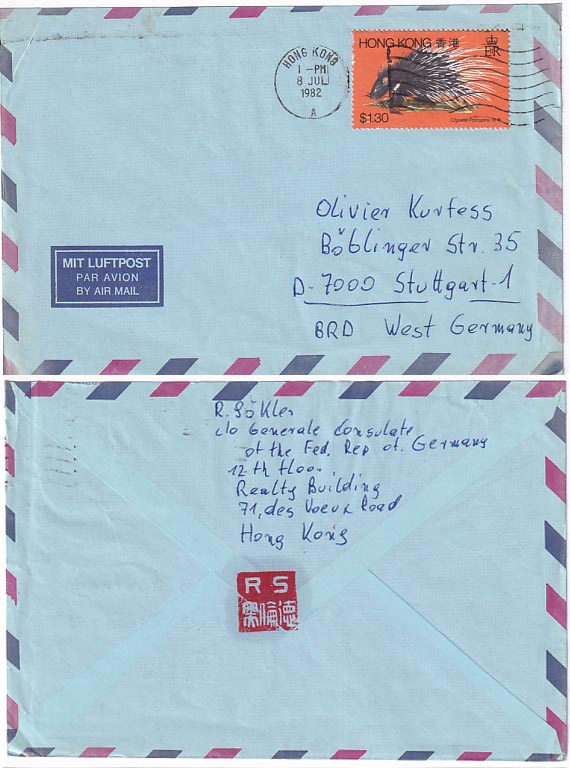 HONG KONG 香港
E II R
$1.30
Chinese Porcupine
HONG KONG
1 - PM
8 JUL
1982
A
Olivier Kurfess
Böblinger Str. 35
D-7000 Stuttgart-1
BRD West Germany
MIT LUFTPOST
PAR AVION
BY AIR MAIL
R. Sökler
c/o Generale Consulate
of the Fed. Rep of. Germany
12th floor.
Realty Building
71, des Voeux Road
Hong Kong
R S